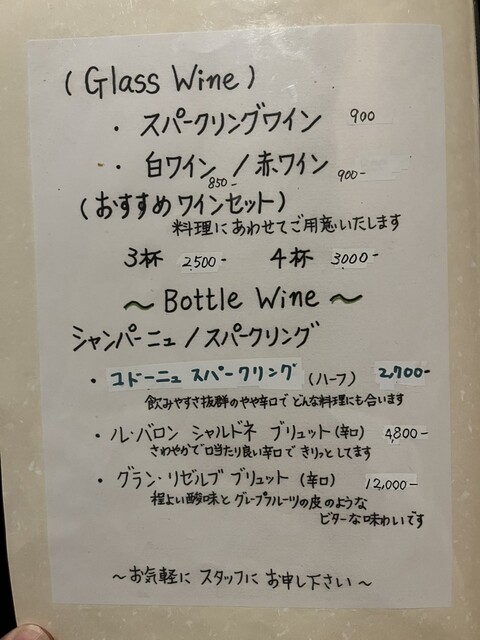 (Glass Wine)
・スパークリングワイン 900
・白ワイン 850- / 赤ワイン 900-
(おすすめワインセット)
料理にあわせてご用意いたします
3杯 2,500- 4杯 3,000-
~ Bottle Wine ~
シャンパーニュ / スパークリング
・コドーニュ スパークリング (ハーフ) 2,700-
飲みやすさ抜群のやや辛口でどんな料理にも合います
・ル・バロン シャルドネ ブリュット(辛口) 4,800-
さわやかで口当たり良い辛口できりっとしてます
・グラン・リゼルブ ブリュット (辛口) 12,000-
程よい酸味とグレープフルーツの皮のような
ビターな味わいです
~お気軽にスタッフにお申し下さい~